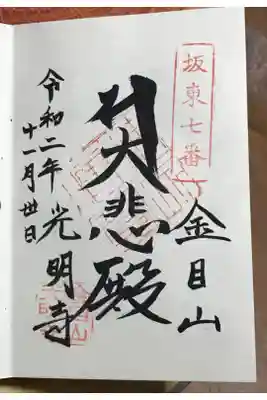 坂東七番
金目山
大悲殿
令和二年 光明寺
十一月丗日